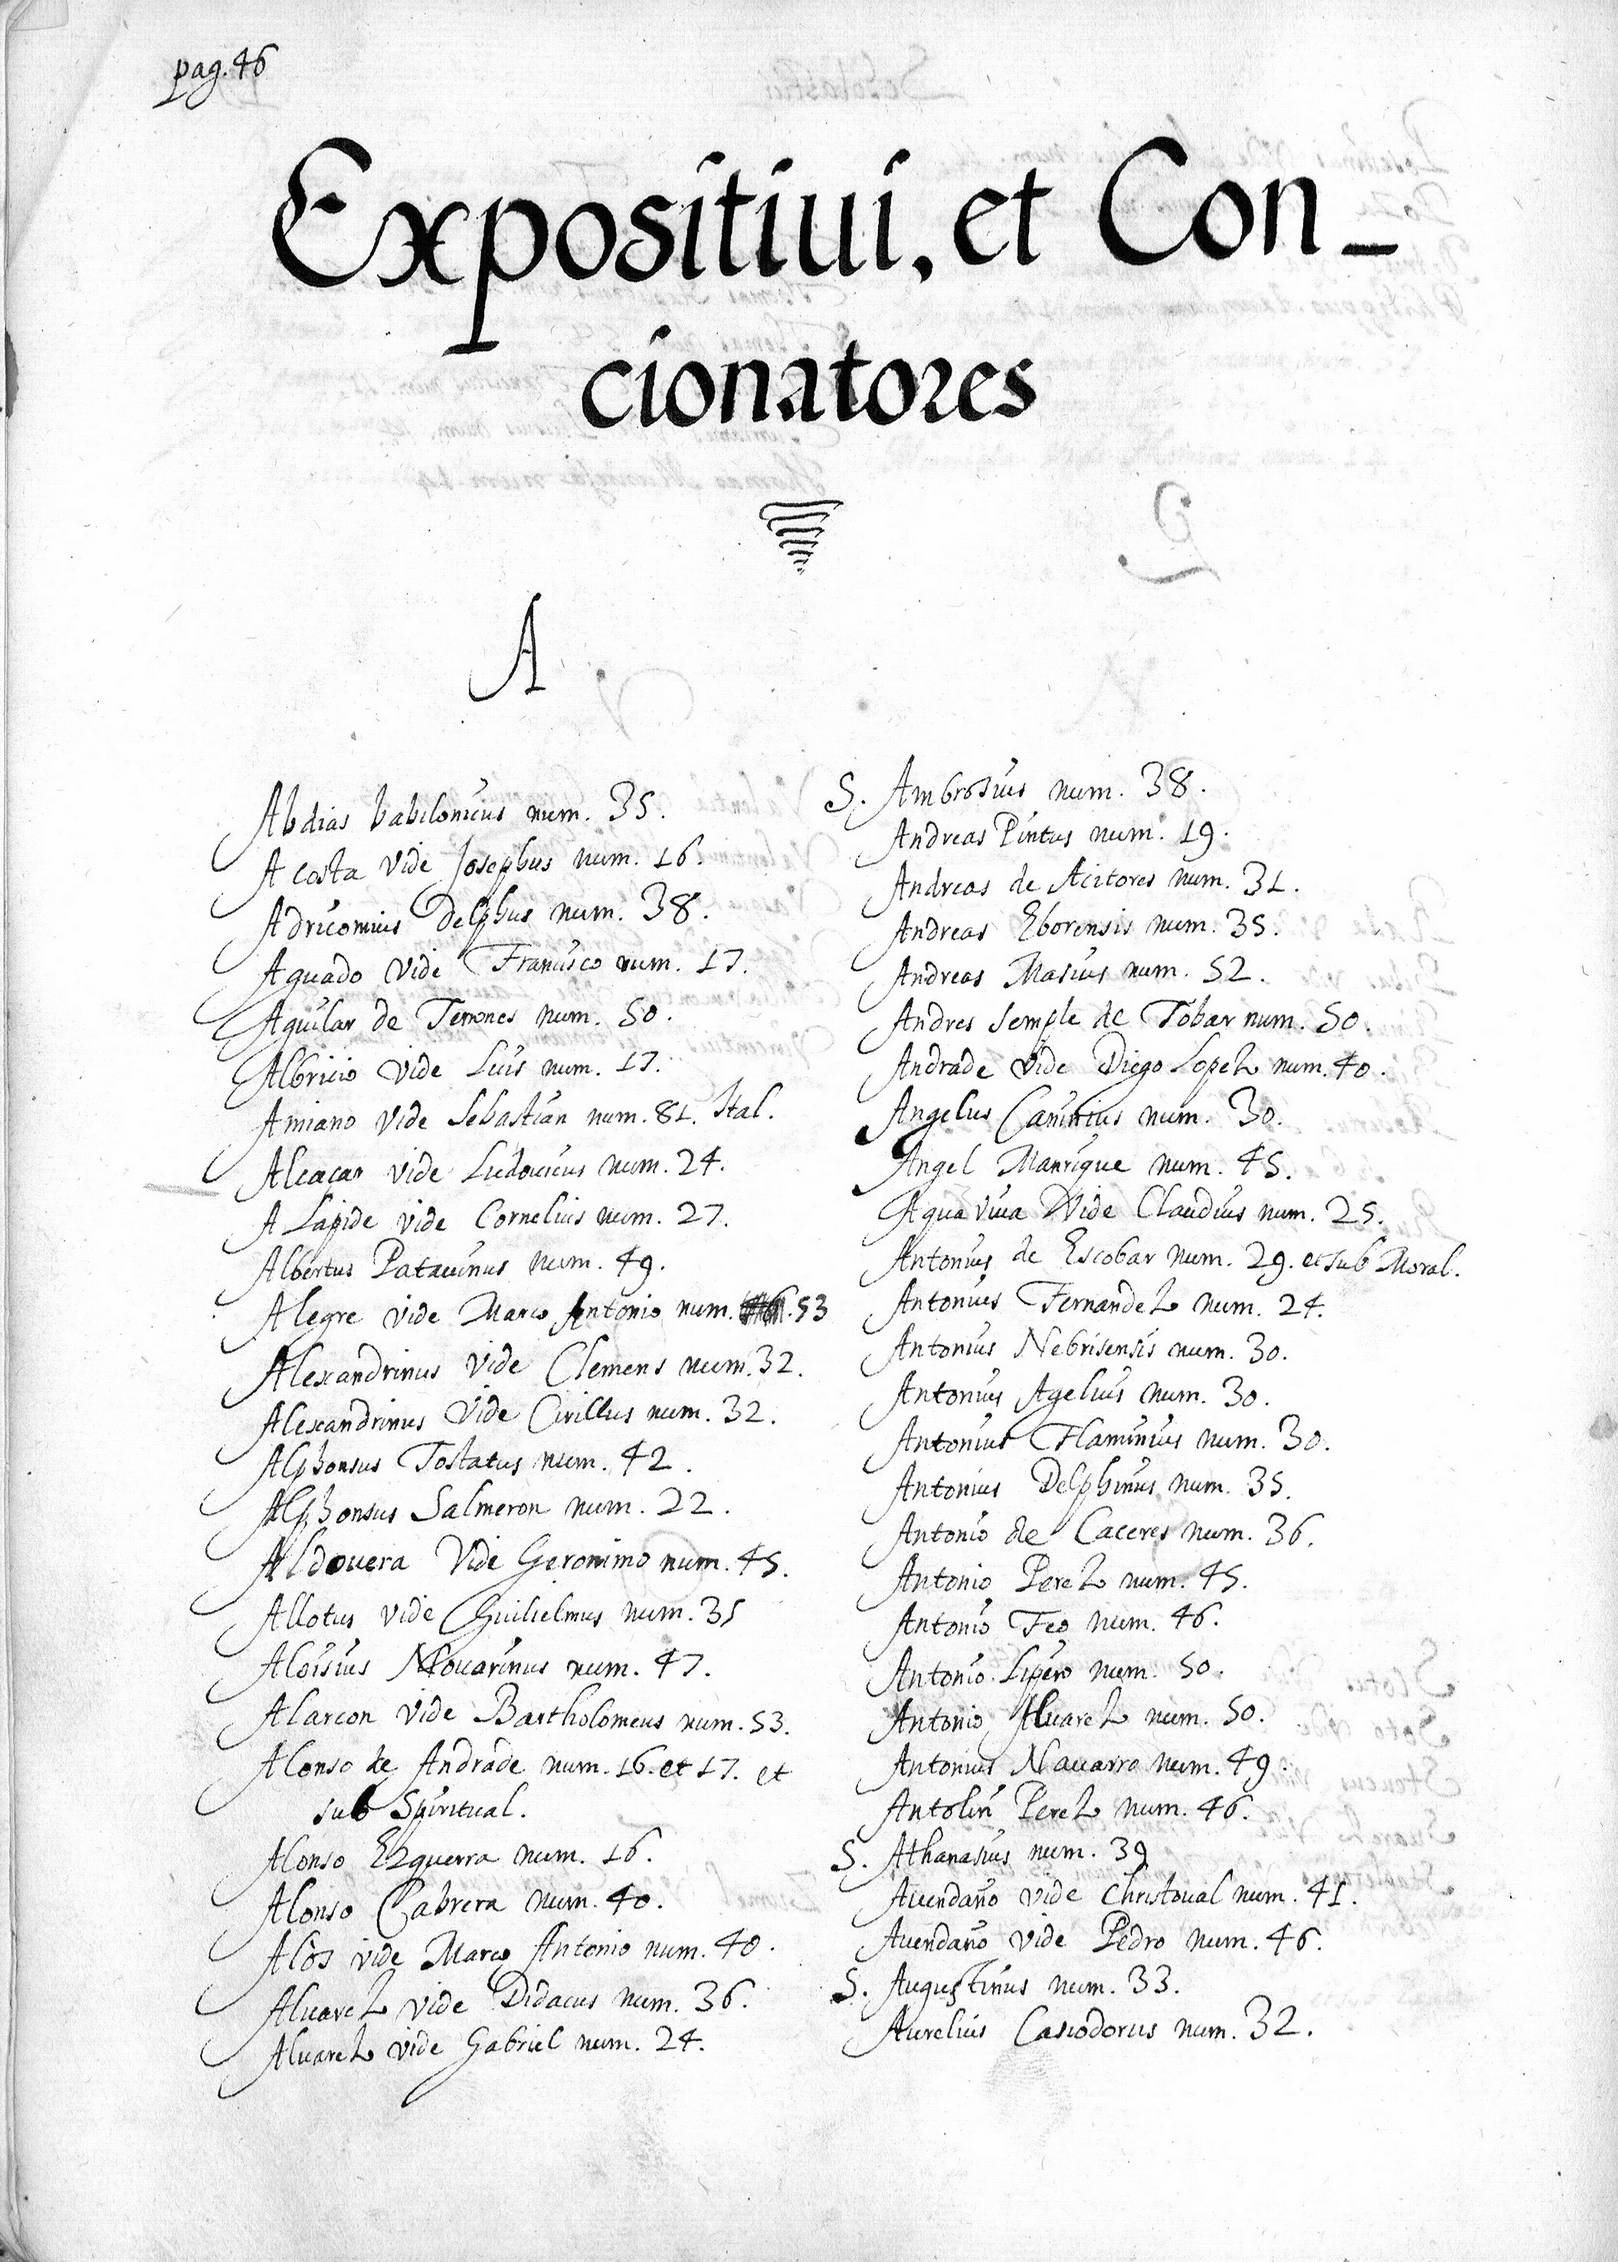 pag. 46
Expositiui, et Con-
cionatores
A
Abdias babilonicus num. 35.
Acosta vide Josephus num. 16.
Adricomius Delphus num. 38.
Aguado vide Francisco num. 17.
Aguilar de Terrones num. 50.
Albricio vide Luis num. 17.
Amiano vide Sebastian num. 81. Ital.
Alcaçar vide Ludouicus num. 24.
A Lapide vide Cornelius num. 27.
Albertus Patauinus num. 49.
Alegre vide Marco Antonio num. 53
Alexandrinus vide Clemens num. 32.
Alexandrinus vide Cirillus num. 32.
Alphonsus Tostatus num. 42.
Alphonsus Salmeron num. 22.
Aldouera vide Geronimo num. 45.
Allotus vide Guilielmus num. 35
Aloisius Nouarinus num. 47.
Alarcon vide Bartholomeus num. 53.
Alonso de Andrade num. 16. et 17. et
sub Spiritual.
Alonso Ezquerra num. 16.
Alonso Cabrera num. 40.
Alòs vide Marco Antonio num. 40.
Aluarez vide Didacus num. 36.
Aluarez vide Gabriel num. 24.
S. Ambrosius num. 38.
Andreas Pintus num. 19.
Andreas de Acitores num. 31.
Andreas Eborensis num. 35.
Andreas Masius num. 52.
Andres Semple de Tobar num. 50.
Andrade vide Diego Lopez num. 40.
Angelus Caninius num. 30.
Angel Manrique num. 45.
Aqua viua Vide Claudius num. 25.
Antonius de Escobar num. 29. et sub Moral.
Antonius Fernandez num. 24.
Antonius Nebrisensis num. 30.
Antonius Agelius num. 30.
Antonius Flaminius num. 30.
Antonius Delphinus num. 35.
Antonio de Caceres num. 36.
Antonio Perez num. 45.
Antonio Feo num. 46.
Antonio Lipero num. 50.
Antonio Aluarez num. 50.
Antonius Nauarro num. 49.
Antolin Perez num. 46.
S. Athanasius num. 39
Auendaño vide Christoual num. 41.
Auendaño vide Pedro num. 46.
S. Augustinus num. 33.
Aurelius Casiodorus num. 32.